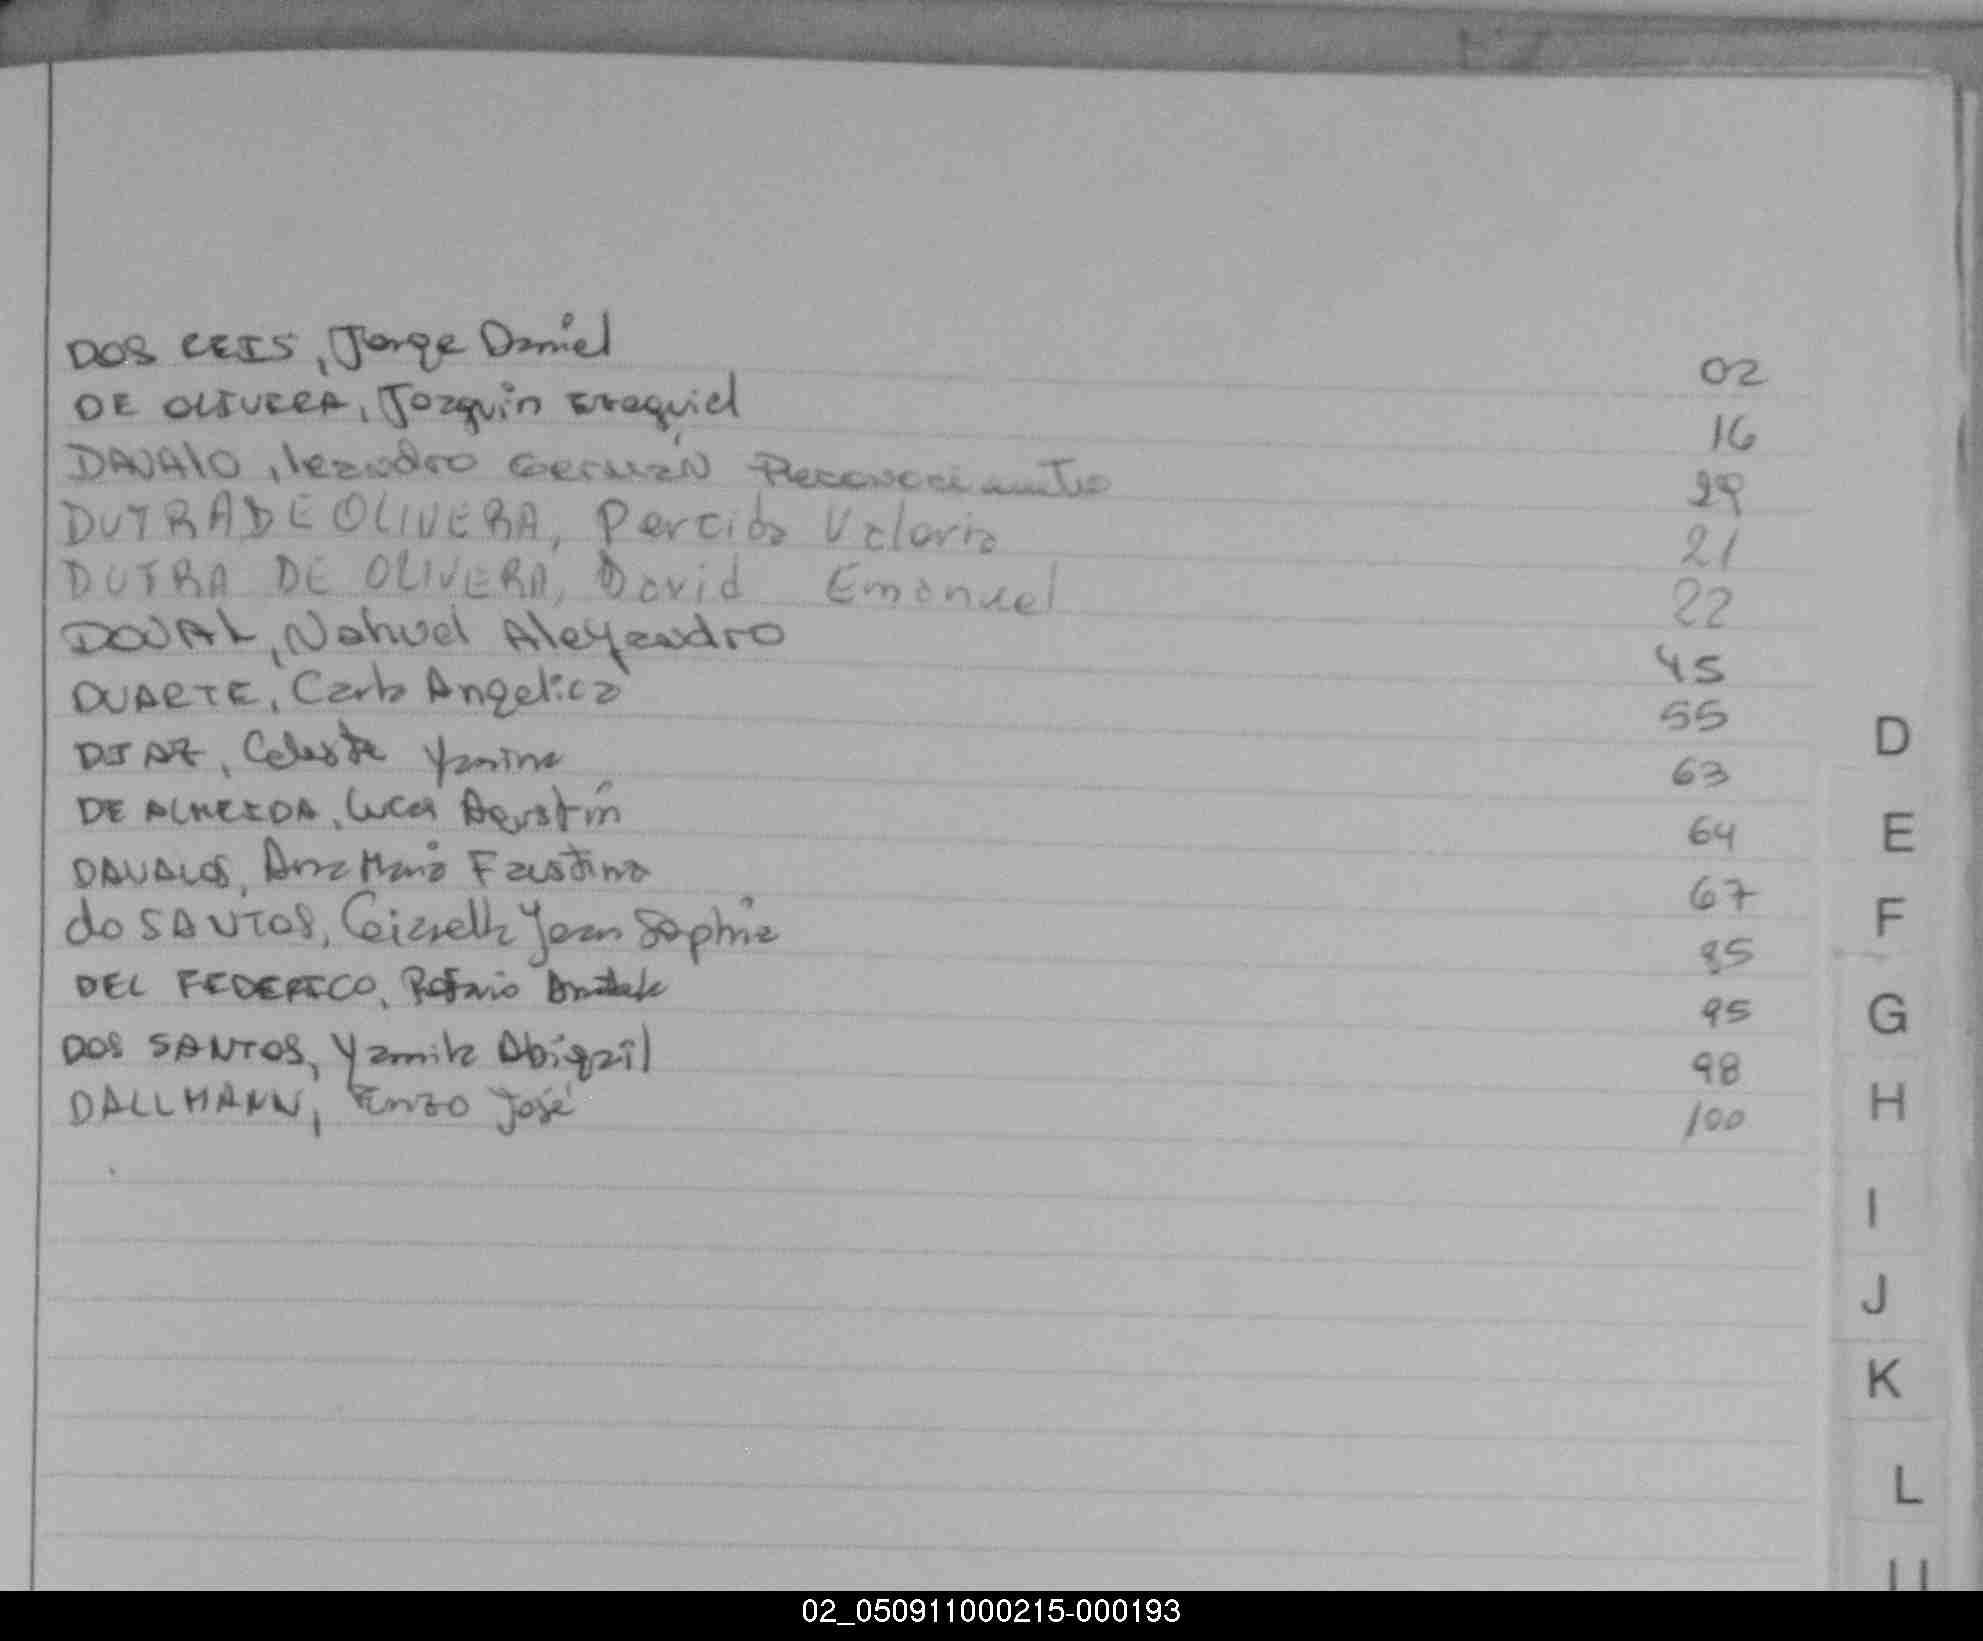 DOS REIS, Jorge Daniel 02
DE OLIVERA, Joaquin Ezequiel 16
DAVALO, leandro Germán Reconocimiento 29
DUTRA DE OLIVERA, Percida Valeria 21
DUTRA DE OLIVERA, David Emanuel 22
DOVAL, Nahuel Alejandro 45
DUARTE, Carla Angelica 55
DIAZ, Celeste Yanina 63
DE ALMEIDA, Lucas Agustín 64
DAVALOS, Ana Maria Faustina 67
do SANTOS, Yean Sophie 85
DEL FEDERICO, 95
DOS SANTOS, Yamila Abigail 98
DALLMANN, Enzo José 100
D
E
F
G
H
I
J
K
L
02_050911000215-000193